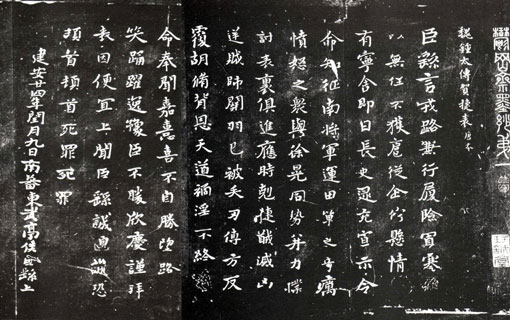 鬱岡齋墨妙弟
魏鍾太傅賀捷表 唐本
臣繇言戎路兼行履險冒寒
以無任不獲扈從企佇懸情
有寧舍即日長史逯充宣示令
命知征南將軍運田單之奇厲
憤怒之衆與徐晃同勢并力撲
討表裏俱進應時剋捷馘滅凶
逆賊帥關羽已被矢刃傅方反
覆胡脩背恩天道禍淫不終
命奉聞嘉憙喜不自勝望路
笑踊躍逸豫臣不勝欣慶謹拜
表因便宜上聞臣繇誠惶誠恐
頓首頓首死罪死罪
建安廿四年閏月九日南蕃東武亭侯臣繇上